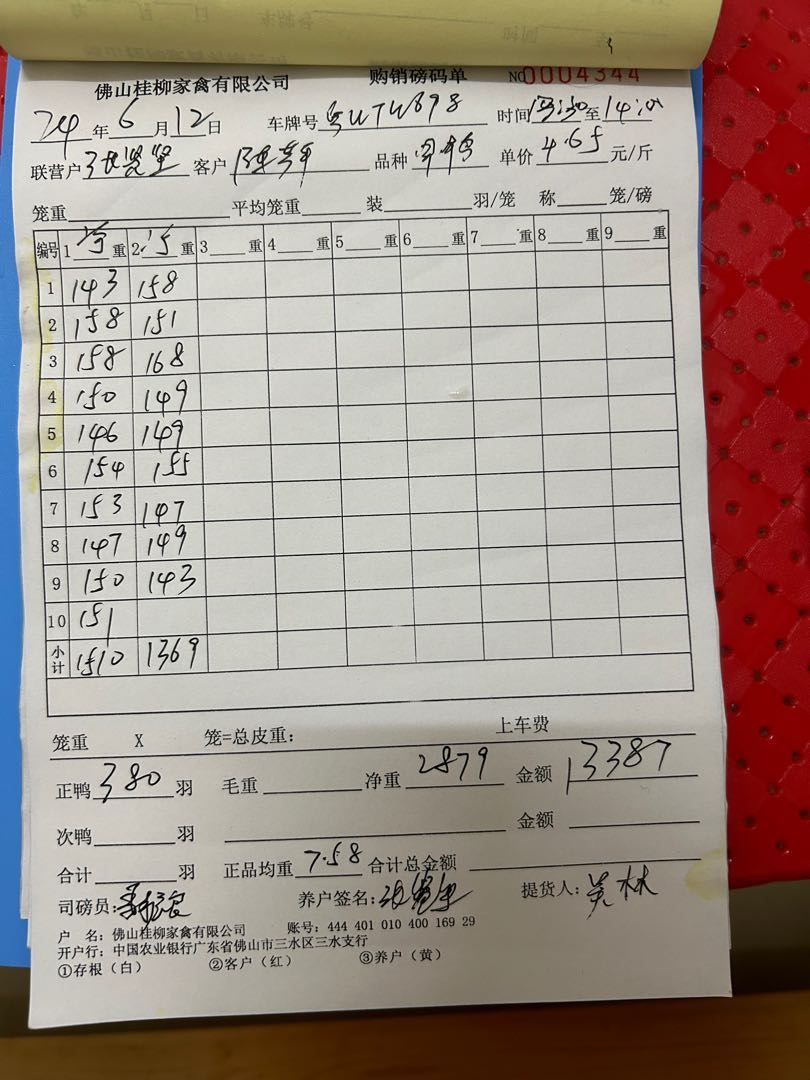 佛山桂柳家禽有限公司 购销磅码单 NO 0004344
24年6月12日 车牌号 粤UTU898 时间 13:30至14:00
联营户 张贤坚 客户 陈 品种 单价 4.65 元/斤
笼重 平均笼重 装 羽/笼 称 笼/磅
编号 1 重 2 重 3 重 4 重 5 重 6 重 7 重 8 重 9 重
1 143 158
2 158 151
3 158 168
4 150 149
5 146 149
6 154 155
7 153 147
8 147 149
9 150 143
10 151
小计 1510 1369
笼重 X 笼=总皮重: 上车费
正鸭 380 羽 毛重 净重 2879 金额 13387
次鸭 羽 金额
合计 羽 正品均重 7.58 合计总金额
司磅员: 养户签名: 张 提货人: 吴林
户 名: 佛山桂柳家禽有限公司 账号: 444 401 010 400 169 29
开户行: 中国农业银行广东省佛山市三水区三水支行
①存根(白) ②客户(红) ③养户(黄)